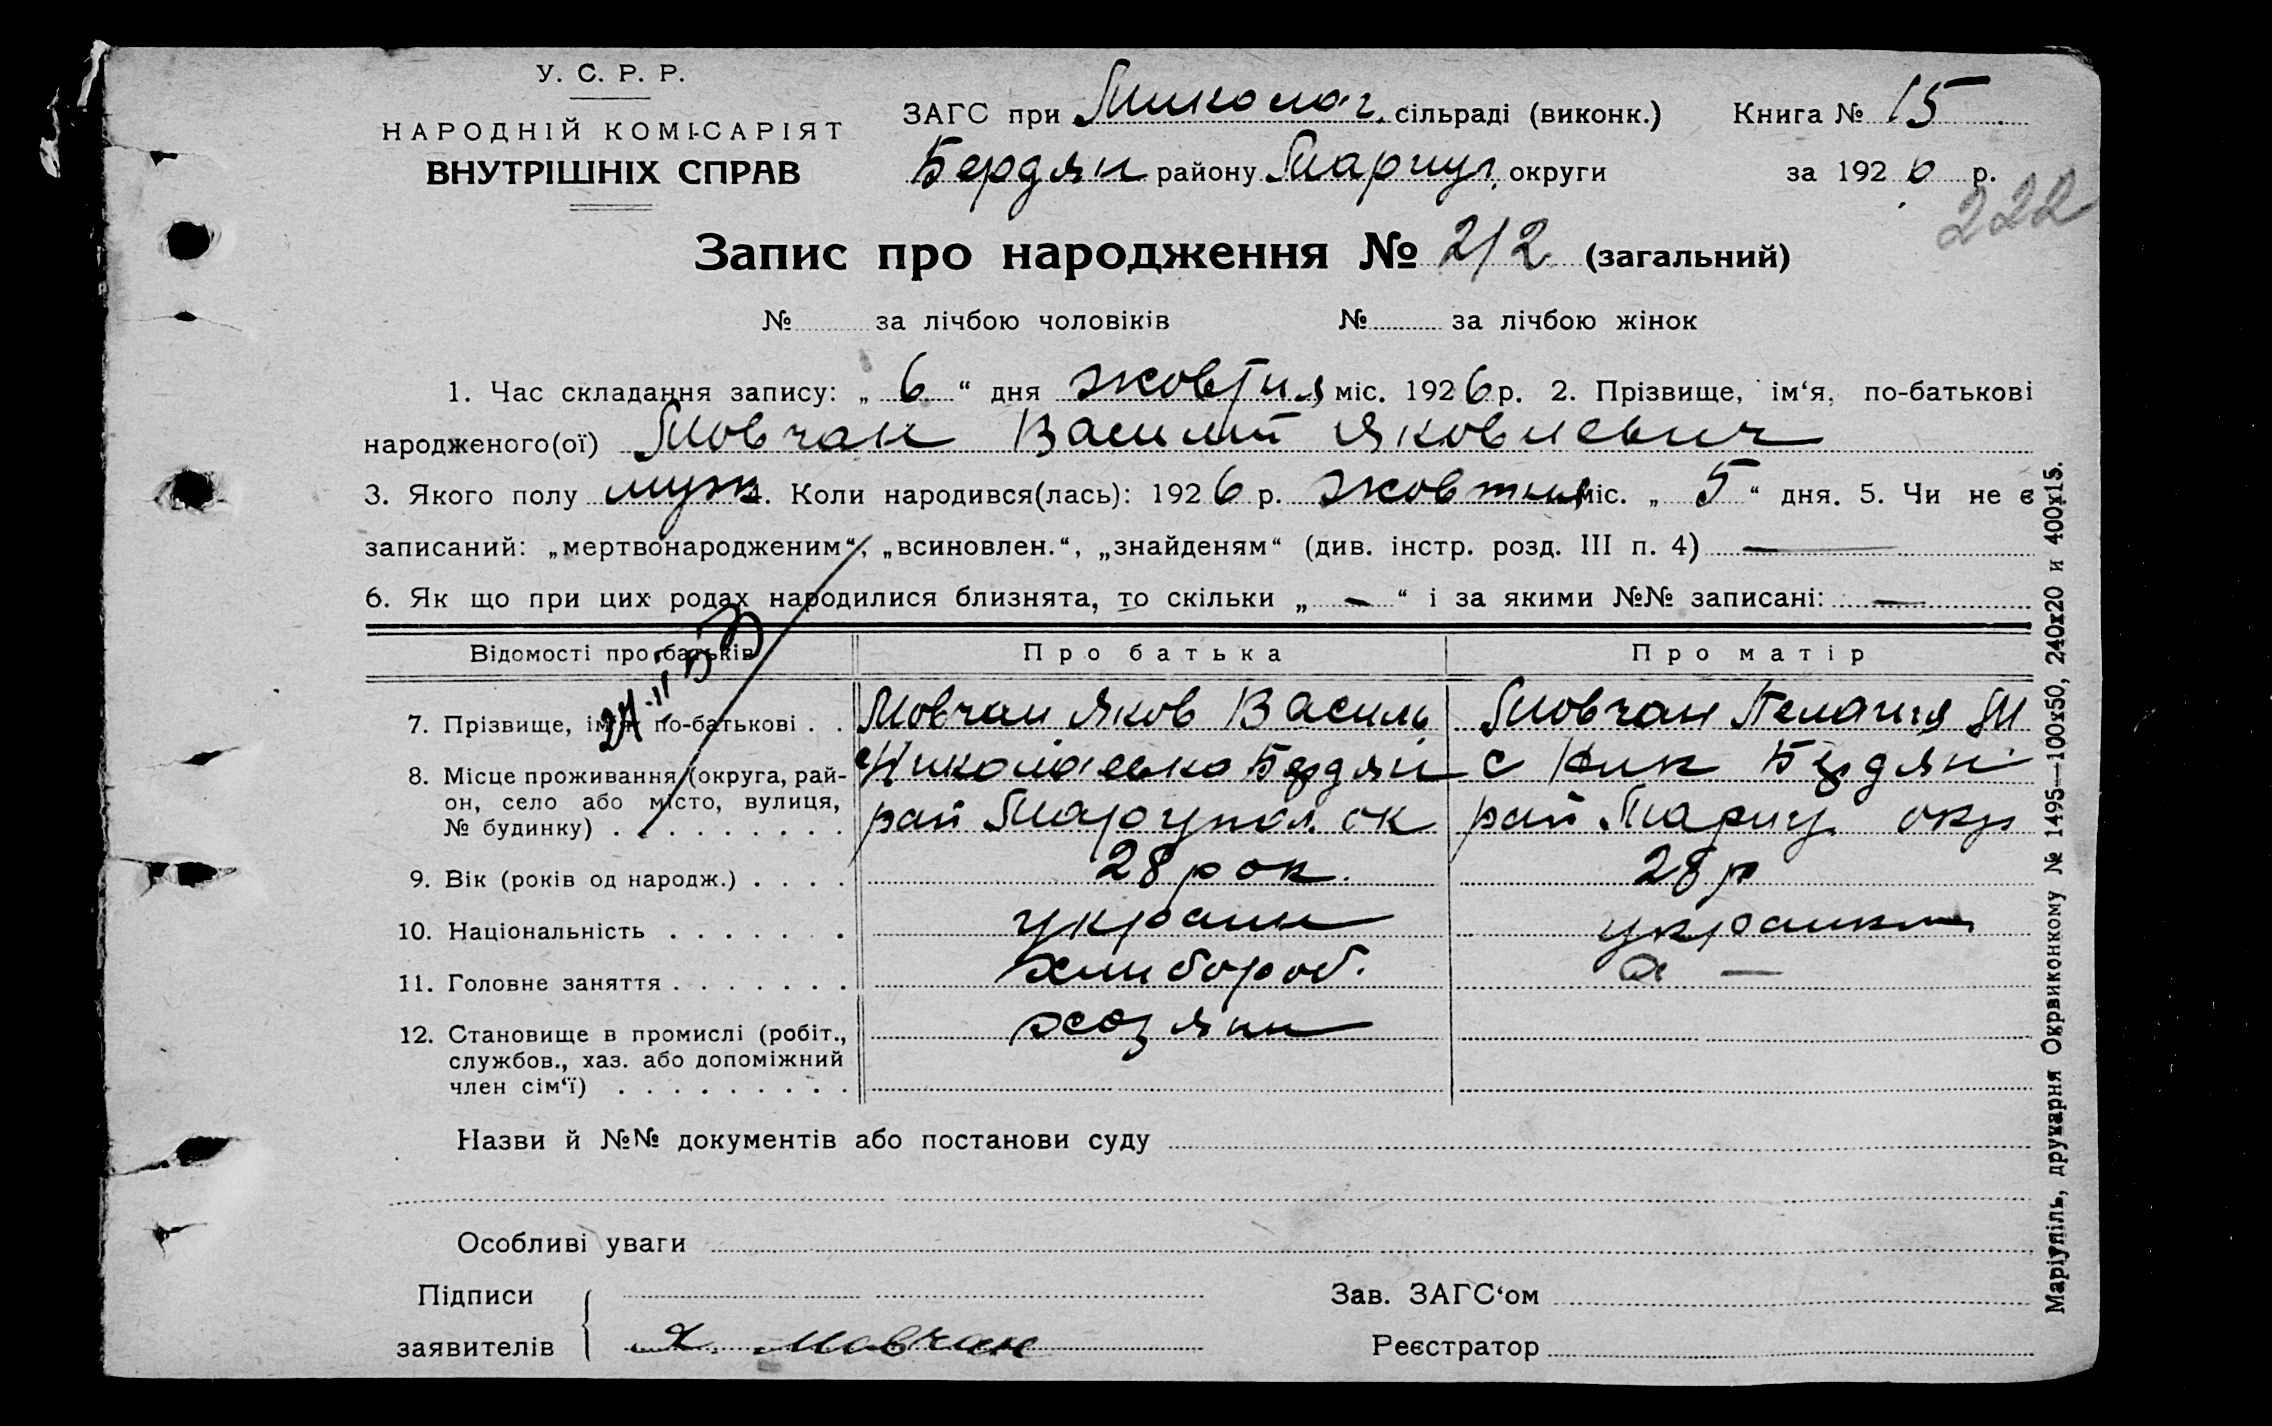 У. С. Р. Р.
НАРОДНІЙ КОМІСАРІЯТ
ВНУТРІШНІХ СПРАВ
ЗАГС при Миколаг. сільраді (виконк.) Книга № 15
Бердян району Мариуп. округи за 1926 р.
222
Запис про народження № 212 (загальний)
№ за лічбою чоловіків № за лічбою жінок
1. Час складання запису: „ 6 “ дня жовтня міс. 1926 р. 2. Прізвище, ім‘я, по-батькові
народженого(ої) Мовчан Василий Яковлевич
3. Якого полу муж 4. Коли народився(лась): 1926 р. жовтня міс. „ 5 “ дня. 5. Чи не є
записаний: „мертвонародженим“, „всиновлен.“, „знайденям“ (див. інстр. розд. III п. 4) —
6. Як що при цих родах народилися близнята, то скільки „ — “ і за якими №№ записані: —
Відомості про батьків Про батька Про матір
7. Прізвище, ім‘я, по-батькові . . Мовчан Яков Василь Мовчан Пелагия М
8. Місце проживання (округа, рай- Бердян с Ник Бердян
он, село або місто, вулиця,
№ будинку) . . . . . . . . . рай Мариупол ок рай Мариу окр
9. Вік (років од народж.) . . . . 28 рок. 28 р
10. Національність . . . . . . . украин украинка
11. Головне заняття . . . . . . . хлибороб. —
12. Становище в промислі (робіт., хозяин
службов., хаз. або допоміжний
член сім‘ї) . . . . . . . . .
Назви й №№ документів або постанови суду
Особливі уваги
Підписи Зав. ЗАГС‘ом
заявителів Я. Мовчан Реєстратор
Маріупіль, друкарня Окрвиконкому № 1495—100х50, 240х20 и 400х15.